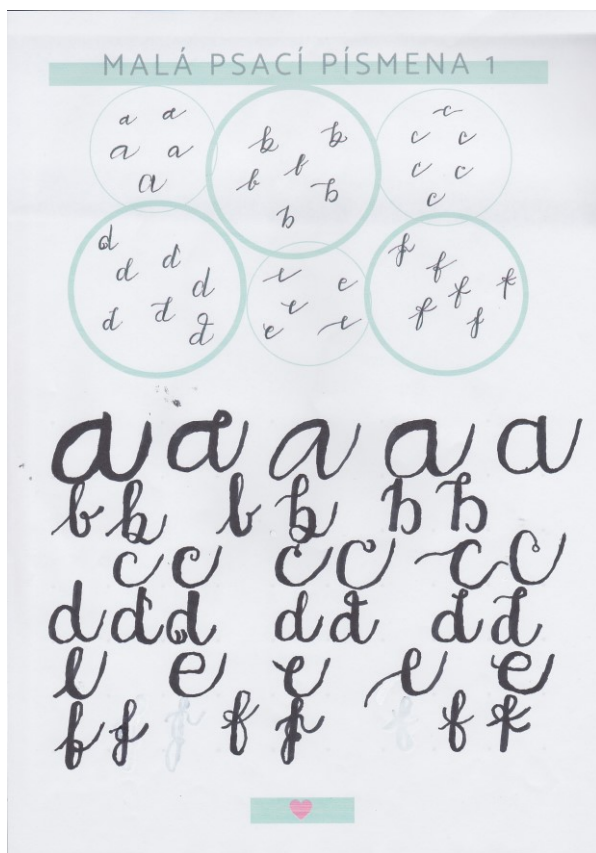 MALÁ PSACÍ PÍSMENA 1
a a
a a
a
b b
b b
b b
c
c c
c c
c
d
d d d
d d d
e e
e
e e
f f
f f
f f
a a a a a
b b b b b b
c c c c c c
d d d d d d d
e e e e e
f f f f f f